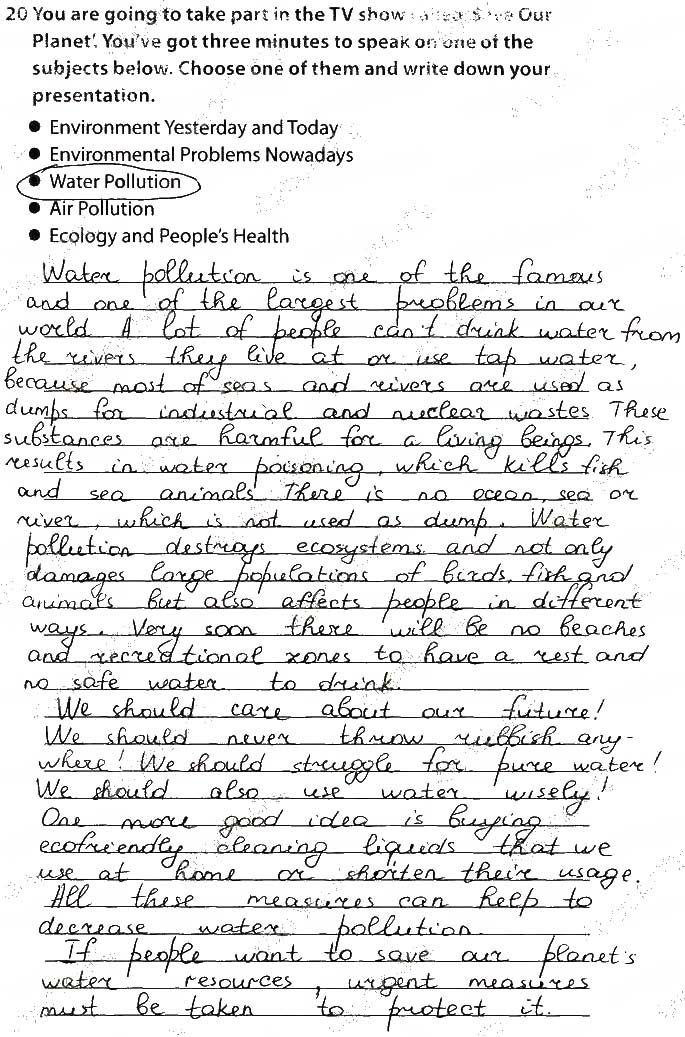 20 You are going to take part in the TV show called 'Save Our
Planet'. You've got three minutes to speak on one of the
subjects below. Choose one of them and write down your
presentation.
● Environment Yesterday and Today
● Environmental Problems Nowadays
● Water Pollution
● Air Pollution
● Ecology and People's Health
Water pollution is one of the famous
and one of the largest problems in our
world. A lot of people can't drink water from
the rivers they live at or use tap water,
because most of seas and rivers are used as
dumps for industrial and nuclear wastes. These
substances are harmful for a living beings. This
results in water poisoning, which kills fish
and sea animals. There is no ocean, sea or
river, which is not used as dump. Water
pollution destroys ecosystems and not only
damages large populations of birds, fish and
animals but also affects people in different
ways. Very soon there will be no beaches
and recreational zones to have a rest and
no safe water to drink.
We should care about our future!
We should never throw rubbish any-
where! We should struggle for pure water!
We should also use water wisely!
One more good idea is buying
ecofriendly cleaning liquids that we
use at home or shorten their usage.
All these measures can help to
decrease water pollution.
If people want to save our planet's
water resources, urgent measures
must be taken to protect it.